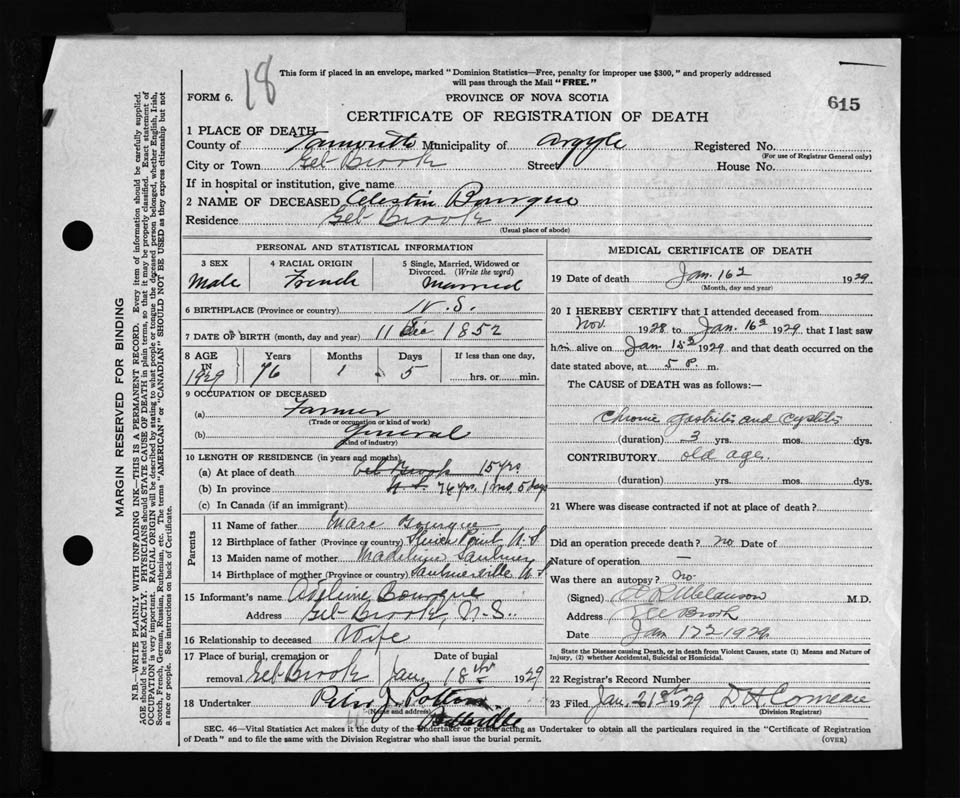 18
This form if placed in an envelope, marked "Dominion Statistics—Free, penalty for improper use $300," and properly addressed
will pass through the Mail "FREE."
FORM 6.
PROVINCE OF NOVA SCOTIA
615
CERTIFICATE OF REGISTRATION OF DEATH
MARGIN RESERVED FOR BINDING
N.B.—WRITE PLAINLY WITH UNFADING INK—THIS IS A PERMANENT RECORD. Every item of information should be carefully supplied.
AGE should be stated EXACTLY. PHYSICIANS should STATE CAUSE OF DEATH in plain terms, so that it may be properly classified. Exact statement of
OCCUPATION is very important. RACIAL ORIGIN will be described by stating to what people or tongue the deceased person belonged, whether English, Irish,
Scotch, French, German, Russian, Ruthenian, etc. The terms "AMERICAN" or "CANADIAN" SHOULD NOT BE USED as they express citizenship but not
a race or people. See instructions on back of Certificate.
1 PLACE OF DEATH
County of Yarmouth Municipality of Argyle Registered No.
(For use of Registrar General only)
City or Town Eel Brook Street House No.
If in hospital or institution, give name
2 NAME OF DECEASED Celestin Bourque
Residence Eel Brook
(Usual place of abode)
PERSONAL AND STATISTICAL INFORMATION
3 SEX
Male
4 RACIAL ORIGIN
French
5 Single, Married, Widowed or
Divorced. (Write the word)
Married
6 BIRTHPLACE (Province or country) N.S.
7 DATE OF BIRTH (month, day and year) 11 Dec 1852
8 AGE Years Months Days If less than one day,
IN
1929 76 1 5 hrs. or min.
9 OCCUPATION OF DECEASED
(a) Farmer
(Trade or occupation or kind of work)
(b) General
(Kind of industry)
10 LENGTH OF RESIDENCE (in years and months)
(a) At place of death Eel Brook 15 yrs
(b) In province N.S. 76 yrs. 1 mo. 5 days
(c) In Canada (if an immigrant)
Parents
11 Name of father Marc Bourque
12 Birthplace of father (Province or country) N.S
13 Maiden name of mother Madeline Saulnier
14 Birthplace of mother (Province or country) Saulnierville N.S
15 Informant's name Adeline Bourque
Address Eel Brook, N.S.
16 Relationship to deceased Wife
17 Place of burial, cremation or Date of burial
removal Eel Brook Jan. 18th 1929
18 Undertaker Peter J. Pottier
(Name and address)
Belleville
MEDICAL CERTIFICATE OF DEATH
19 Date of death Jan. 16 1929
(Month, day and year)
20 I HEREBY CERTIFY that I attended deceased from
Nov. 1928 to Jan. 16th 1929, that I last saw
him alive on Jan 15th 1929 and that death occurred on the
date stated above, at 5 P. m.
The CAUSE of DEATH was as follows:
Chronic gastritis and Cystitis
(duration) 3 yrs. mos. dys.
CONTRIBUTORY old age.
(duration) yrs. mos. dys.
21 Where was disease contracted if not at place of death?
Did an operation precede death? no Date of
Nature of operation —
Was there an autopsy? no
(Signed) Melanson M.D.
Address Eel Brook
Date Jan 17 1929
State the Disease causing Death, or in death from Violent Causes, state (1) Means and Nature of
Injury, (2) whether Accidental, Suicidal or Homicidal.
22 Registrar's Record Number
23 Filed Jan. 21st 1929 D H Comeau
(Division Registrar)
SEC. 46—Vital Statistics Act makes it the duty of the Undertaker or person acting as Undertaker to obtain all the particulars required in the "Certificate of Registration
of Death" and to file the same with the Division Registrar who shall issue the burial permit.
(OVER)